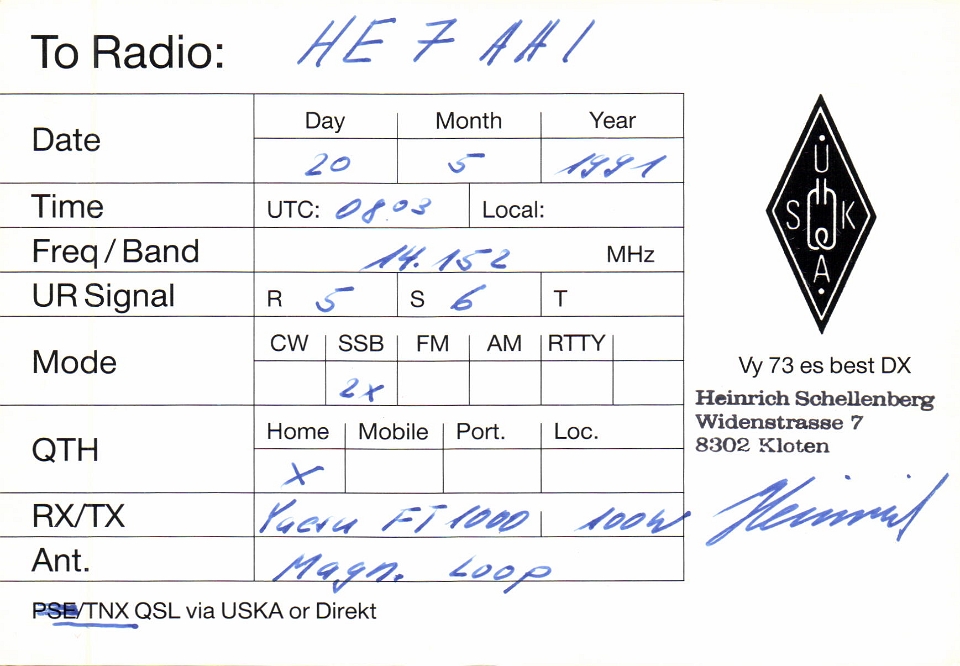 To Radio: HE 7 AH1
Date Day Month Year
20 5 1991
Time UTC: 08.03 Local:
Freq / Band 14.152 MHz
UR Signal R 5 S 6 T
Mode CW SSB FM AM RTTY
2x
QTH Home Mobile Port. Loc.
X
RX/TX Yaesu FT 1000 100W
Ant. Magn. Loop
PSE/TNX QSL via USKA or Direkt
U
S K
A
Vy 73 es best DX
Heinrich Schellenberg
Widenstrasse 7
8302 Kloten
Heinrich